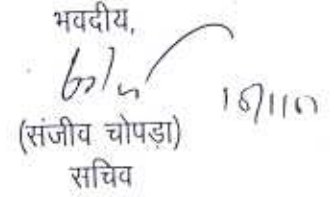 भवदीय,
(संजीव चोपड़ा)
सचिव